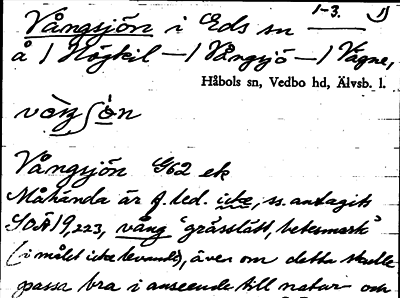 1-3. 1)
Vångsjön i Eds sn
å 1 Högkil — 1 Vångsjö — 1 Vågne,
Håbols sn, Vedbo hd, Älvsb. l.
Vångsjön G62 ek
Måhända är f. led. icke, ss. antagits
SOÄ 19,223, vång "grässlätt, betesmark"
(i målet icke levande), även om detta skulle
passa bra i anseende till natur och